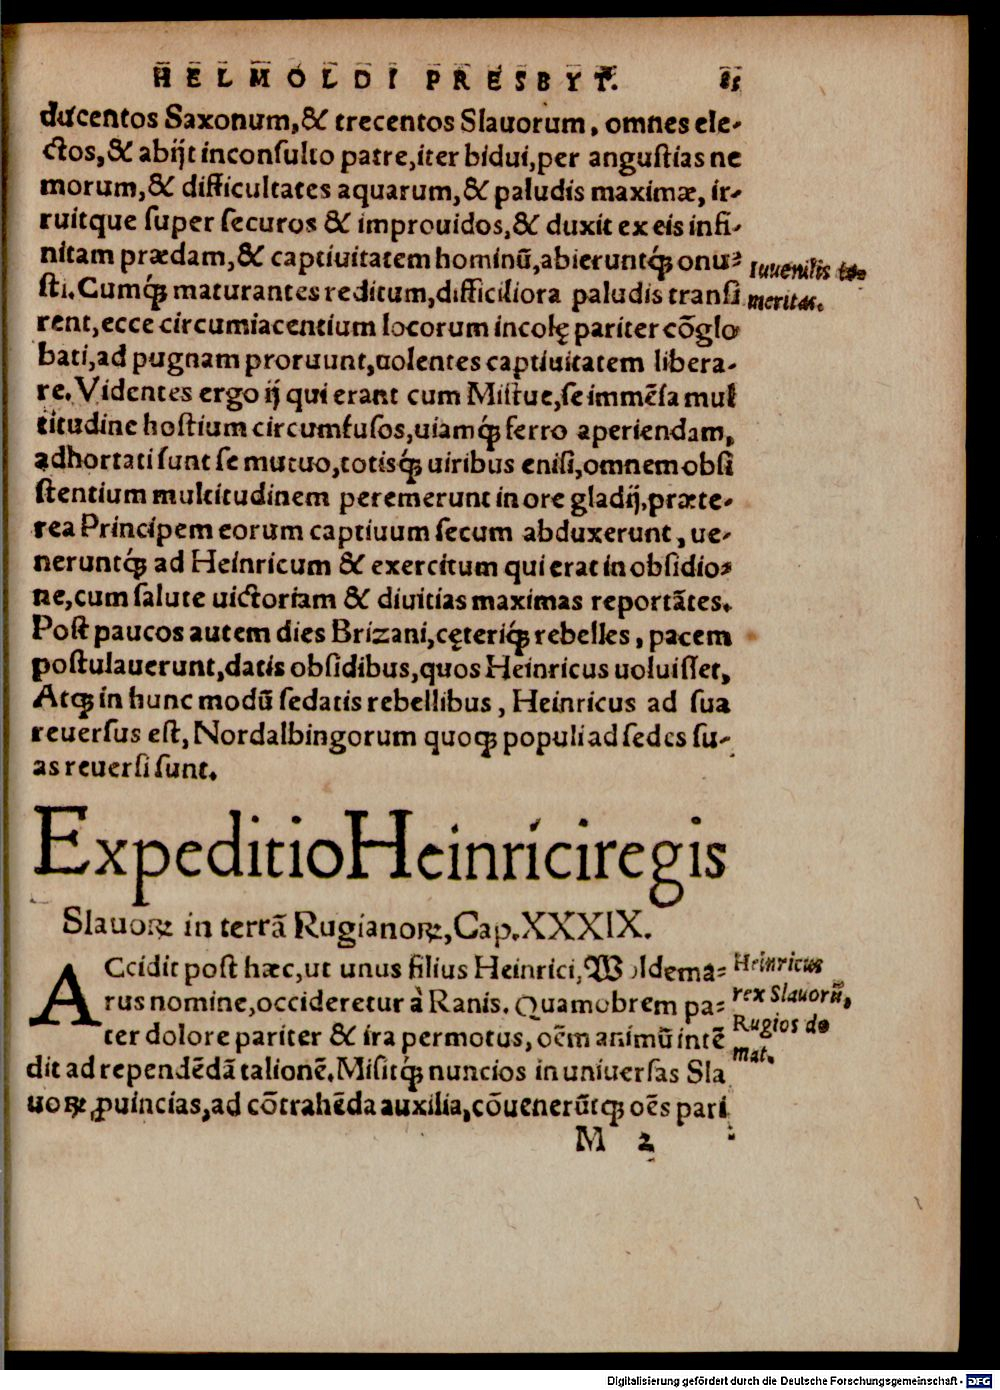 HELMOLDI PRESBYT.
ducentos Saxonum,& trecentos Slauorum, omnes ele-
ctos,& abijt inconsulto patre,iter bidui,per angustias ne
morum,& difficultates aquarum,& paludis maximæ, ir-
ruitque super securos & improuidos,& duxit ex eis infi-
nitam prædam,& captiuitatem hominū,abieruntq́ꝫ onu-
sti.Cumq́ꝫ maturantes reditum,difficiliora paludis transi
rent,ecce circumiacentium locorum incolę pariter cōglo
bati,ad pugnam proruunt,uolentes captiuitatem libera-
re.Videntes ergo ij qui erant cum Mistue,se immēsa mul
titudine hostium circumfusos,uiamq́ꝫ ferro aperiendam,
adhortati sunt se mutuo,totisq́ꝫ uiribus enisi,omnem obsi
stentium multitudinem peremerunt in ore gladij,præte-
rea Principem eorum captiuum secum abduxerunt, ue-
neruntq́ꝫ ad Heinricum & exercitum qui erat in obsidio-
ne,cum salute uictoriam & diuitias maximas reportātes.
Post paucos autem dies Brizani,cęteriq́ꝫ rebelles, pacem
postulauerunt,datis obsidibus,quos Heinricus uoluisset,
Atqꝫ in hunc modū sedatis rebellibus, Heinricus ad sua
reuersus est, Nordalbingorum quoqꝫ populi ad sedes su-
as reuersi sunt.
Iuuenilis te-
meritas.
Expeditio Heinrici regis
Slauoꝝ in terrā Rugianoꝝ,Cap.XXXIX.
ACcidit post hæc,ut unus filius Heinrici,Woldema-
rus nomine,occideretur à Ranis. Quamobrem pa-
ter dolore pariter & ira permotus, oēm animū intē
dit ad rependēdā talionē.Misitq́ꝫ nuncios in uniuersas Sla
uoꝝ ꝓuincias,ad cōtrahēda auxilia,cōuenerūtqꝫ oēs pari
Heinricus
rex Slauorū,
Rugios do
mat.
M 2
Digitalisierung gefördert durch die Deutsche Forschungsgemeinschaft - DFG